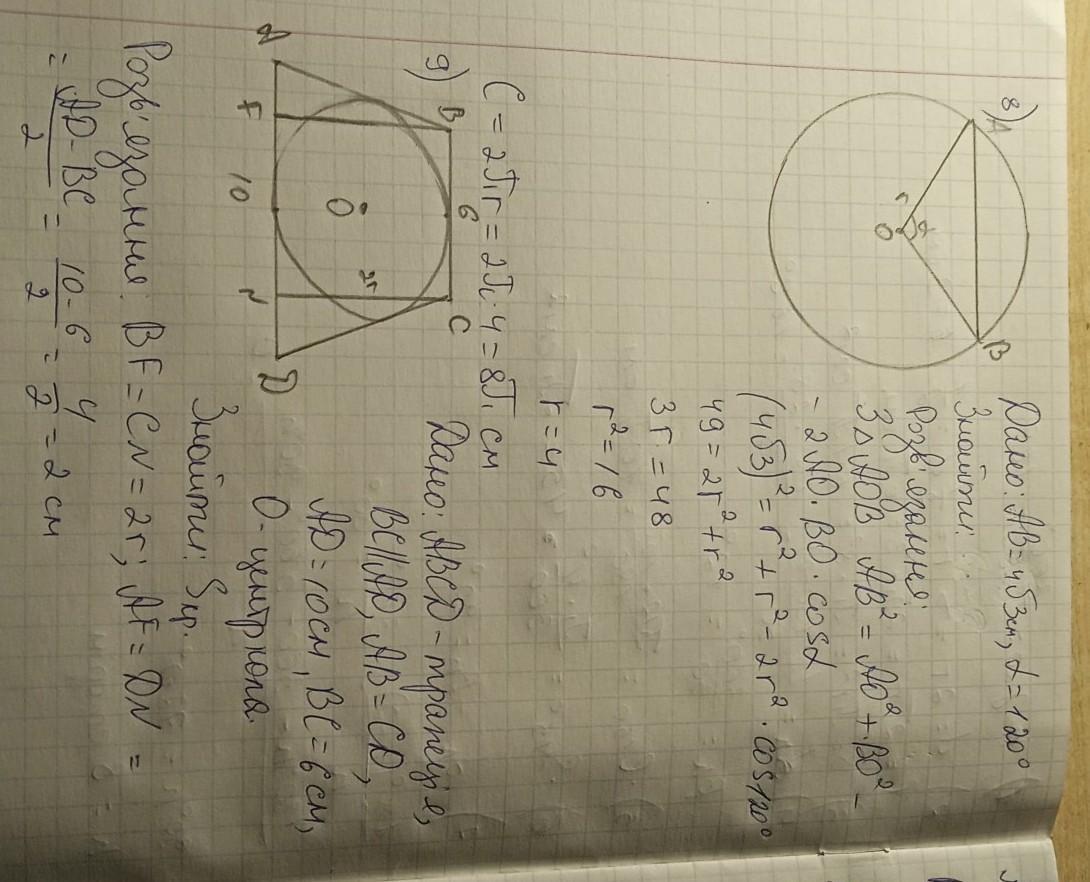 8)
A
B
r
α
O
Дано: AB=4√3см, α=120°
Знайти:
Розв'язання:
З △ AOB AB² = AO² + BO² –
- 2 AO · BO · cosα
(4√3)² = r² + r² - 2r² · cos120°
49 = 2r² + r²
3r = 48
r² = 16
r = 4
C = 2πr = 2π · 4 = 8π см
9)
B
6
C
O
2r
A
F
10
N
D
Дано: ABCD - трапеція,
BC||AD, AB = CD,
AD = 10см, BC = 6 см,
O - центр кола.
Знайти: Sкр.
Розв'язання: BF = CN = 2r; AF = DN =
= AD - BC / 2 = 10 - 6 / 2 = 4 / 2 = 2 см